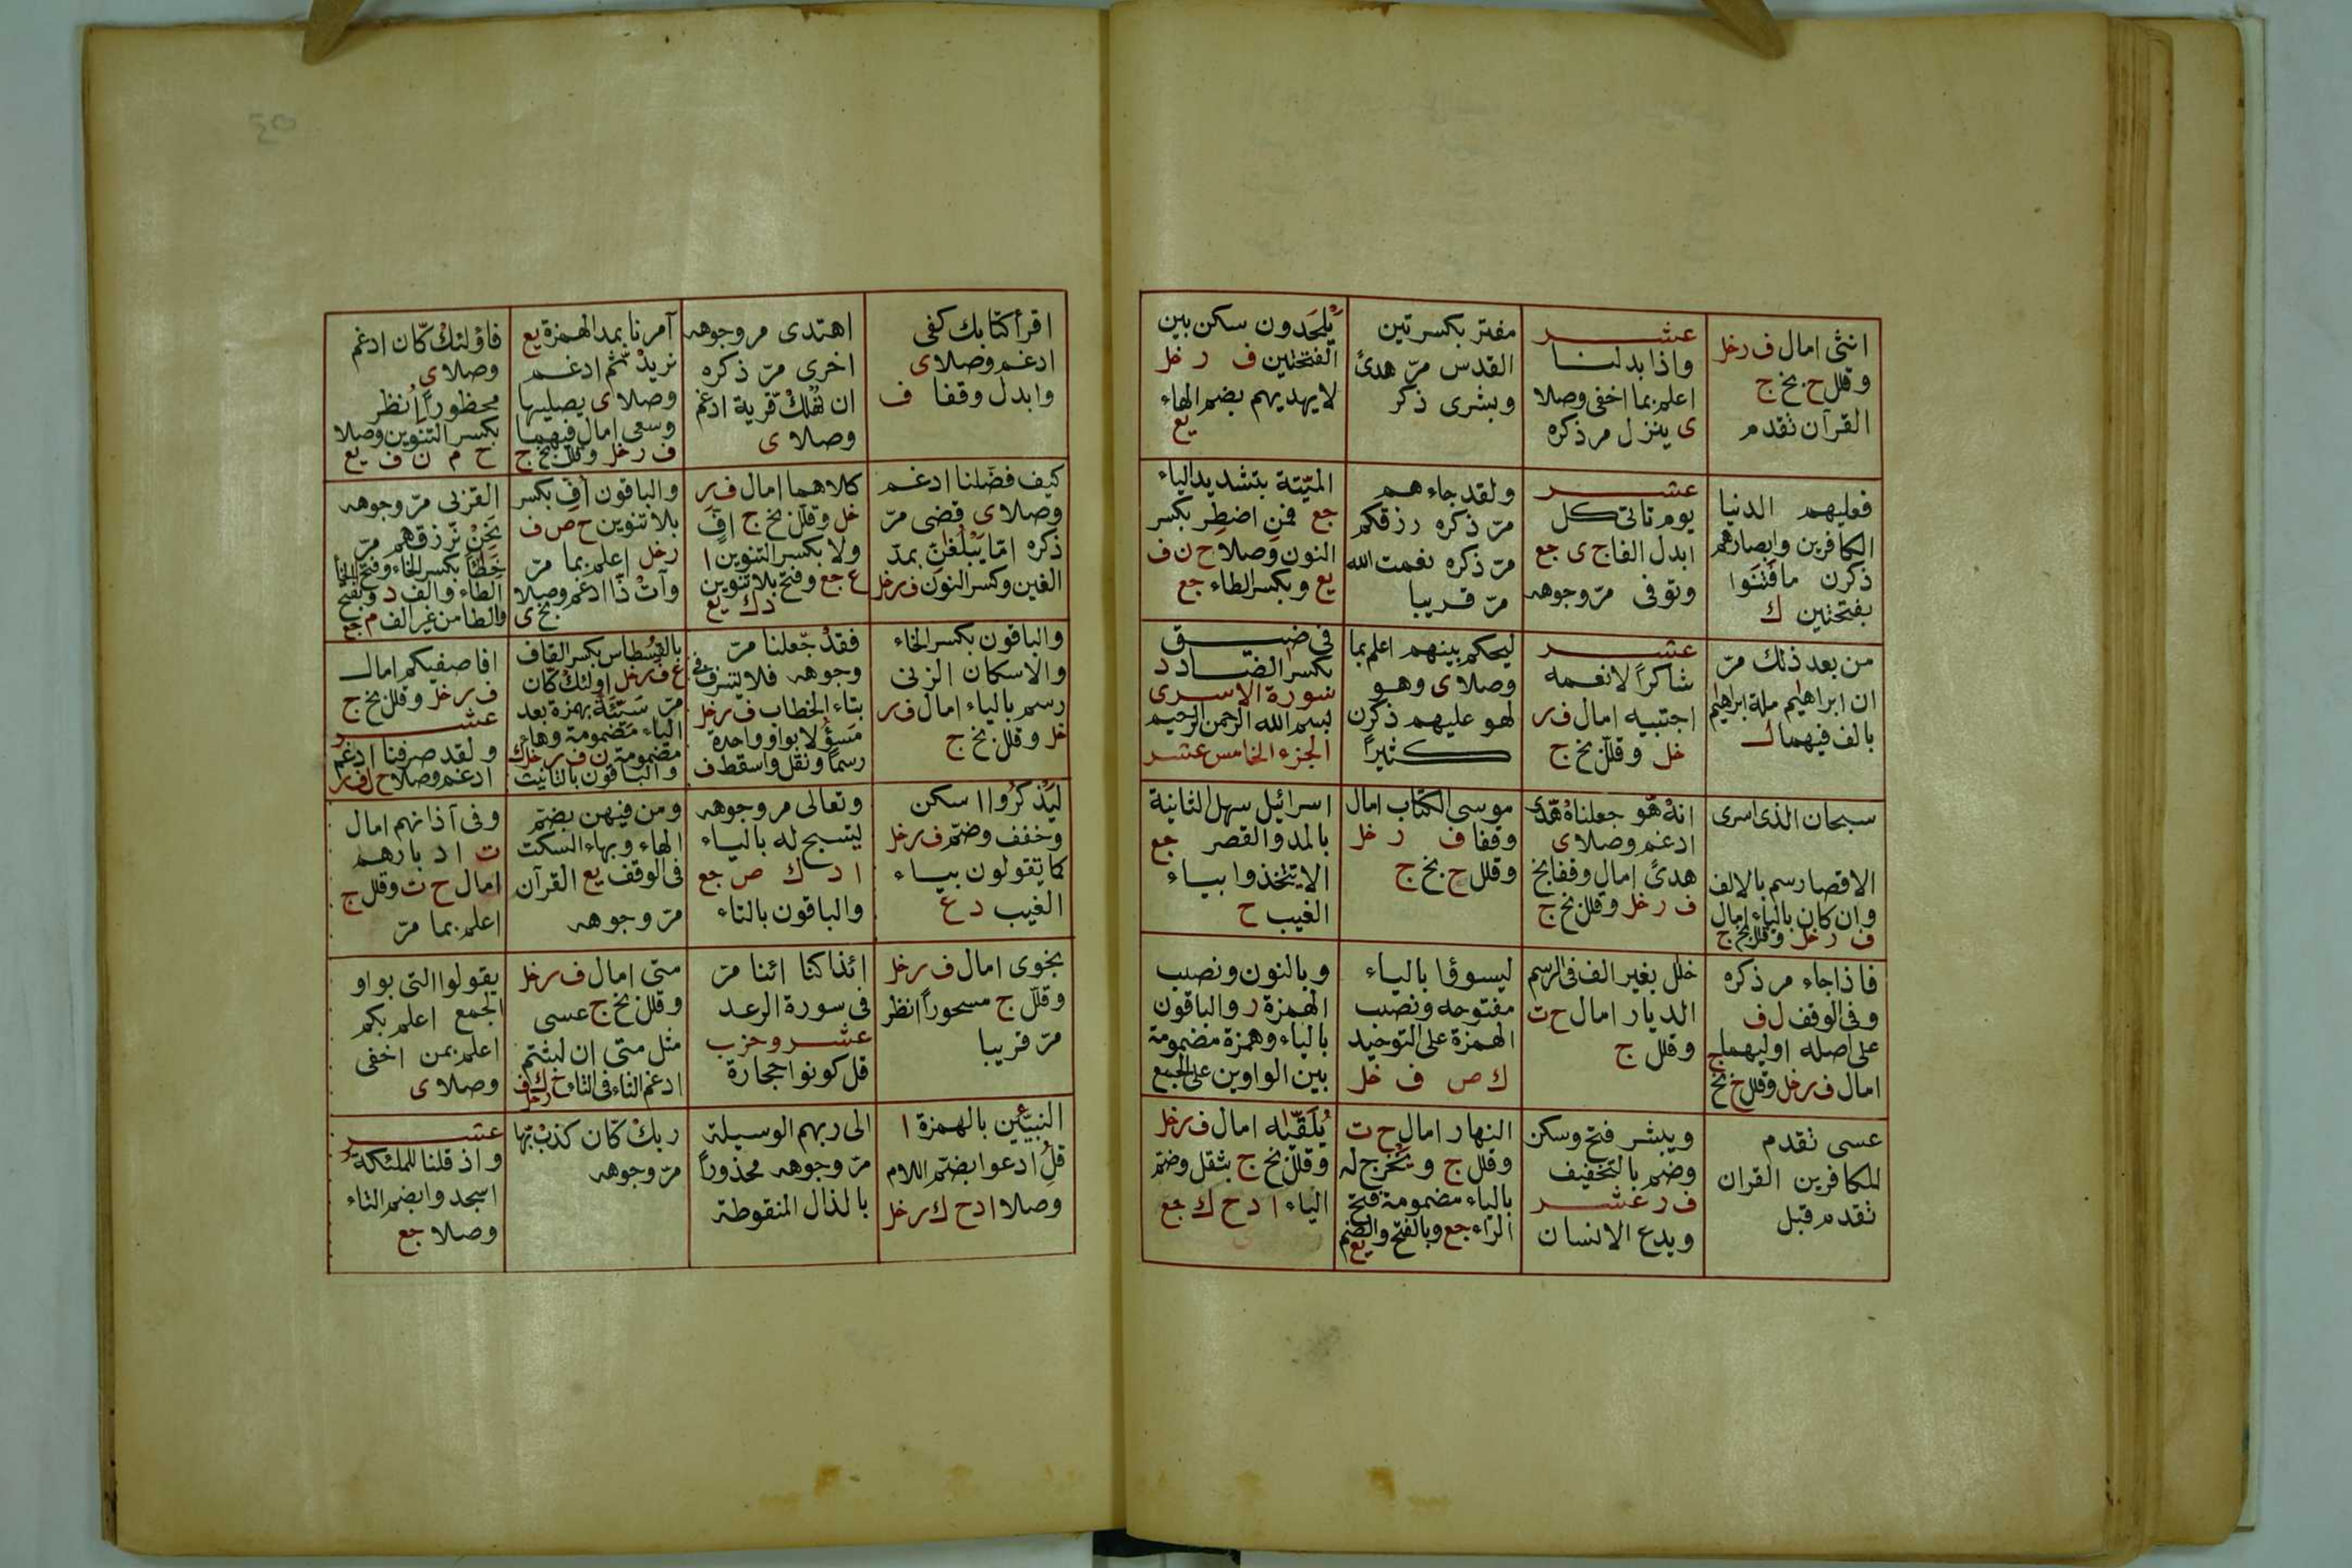 انثى امال ف ر خل
وقلل ح بخ ج
القرآن تقدم
عشر
واذا بدلنا
اعلم بما اخفى وصلا
ى ينزل مر ذكره
مفتر بكسرتين
القدس مرّ هدىً
وبشرى ذكر
يَلحَدون سكن بين
الفتحتين ف ر خل
لا يهديهم بضم الهاء
يع
فعليهم الدنيا
الكافرين وابصارهم
ذكرن ما فَتَنَوا
بفتحتين ك
عشر
يوم تاتى كل
ابدل الفا ج ى جع
وتوفى مرّ وجوهه
ولقد جاءهم
مرّ ذكره رزقكم
مرّ ذكره نعمت الله
مرّ قريبا
الميّتة بتشديد الياء
جع فمن اضطر بكسر
النون وصلا ح ن ف
يع وبكسر الطاء جع
من بعد ذلك مرّ
ان ابراهيم ملة ابراهيم
بالف فيهما ل
عشر
شاكراً لانعمه
اجتبيه امال ف ر
خل وقلل بخ ج
ليحكم بينهم اعلم بما
وصلا ى وهو
لهو عليهم ذكرن
كثيراً
فى ضيق
بكسر الضاد د
سورة الاسرى
بسم الله الرحمن الرحيم
الجزء الخامس عشر
سبحان الذى اسرى
الاقصا رسم بالالف
وان كان بالياء امال
ف ر خل وقلل بخ ج
انهْ هّو جعلناهْ هّدى
ادغم وصلا ى
هدىً امال وقفا بخ
ف ر خل وقلل بخ ج
موسى الكتاب امال
وقفا ف ر خل
وقلل ح بخ ج
اسرائيل سهل الثانية
بالمد والقصر جع
الا يتخذوا بياء
الغيب ح
فاذا جاء مر ذكره
وفى الوقف ل ف
على اصله اوليهما ج
امال ف ر خل وقلل ح بخ
خلل بغير الف فى الرسم
الديار امال ح ت
وقلل ج
ليسوؤا بالياء
مفتوحه ونصب
الهمزة على التوحيد
ك ص ف خل
وبالنون ونصب
الهمزة ر والباقون
بالياء وهمزة مضمومة
بين الواوين على الجمع
عسى تقدم
للكافرين القران
تقدم قبل
ويبشر فتح وسكن
وضم بالتخفيف
ف ر عشر
ويدع الانسان
النهار امال ح ت
وقلل ج ويُخرج له
بالياء مضمومة فتح
الراء جع وبالفتح والضم
يع
يُلَقّيٰه امال ف ر خل
وقلل بخ ج بثقل وضم
الياء ا د ح ك جع
اقرأ كتابك كفى
ادغم وصلا ى
وابدل وقفا ف
اهتدى مر وجوهه
اخرى مرّ ذكره
ان نهلكْ قّرية ادغم
وصلا ى
آمرنا بمد الهمزة يع
نريدْ ثّم ادغم
وصلا ى يصليها
وسعى امال فيهما
ف ر خل وقلل بخ ج
فاولئكْ كّان ادغم
وصلا ى
محظوراً انظر
بكسر التنوين وصلا
ح م ن ف يع
كيف فضّلنا ادغم
وصلا ى قضى مرّ
ذكره امّا يَبْلُغانّ بمدّ
الغين وكسر النون ف ر خل
كلاهما امال ف ر
خل وقلل بخ ج افّ
ولا بكسر التنوين ا
ع جع وفتح بلا تنوين
د ك يع
والباقون أفّ بكسر
بلا تنوين ح ص ف
ر خل اعلم بما مرّ
وآتْ ذّا ادغم وصلا
بخ ى
القربى مرّ وجوهه
نحن نرزقهم مرّ
خطأً بكسر الخاء وفتح
الطاء والف د وبفتح الخا
والطا من غير الف م جع
والباقون بكسر الخاء
والاسكان الزنى
رسم بالياء امال ف ر
خل وقلل بخ ج
فقدْ جّعلنا مرّ
وجوهه فلا تسرف فى
بتاء الخطاب ف ر خل
مسؤلا بواو واحدة
رسماً ونقل واسقط ف
بالقسطاس بكسر القاف
ع ف ر خل اولئكْ كّان
مرّ سيّئَهُ بهمزة بعد
الياء مضمومة وهاء
مضمومة ن ف ر خل ك
والباقون بالتانيث
افاصفيكم امال
ف ر خل وقلل بخ ج
عشر
ولقد صرفنا ادغم
ادغم وصلا ح ل ف ر
ليَذكُروا اسكن
وخفف وضم ف ر خل
كما يقولون بياء
الغيب د ع
وتعالى مر وجوهه
ليتسبح له بالياء
ا د ك ص جع
والباقون بالتاء
ومن فيهن بضم
الهاء وبهاء السكت
فى الوقف يع القرآن
مرّ وجوهه
وفى آذانهم امال
ت ادبارهم
امال ح ت وقلل ج
اعلم بما مرّ
نجوى امال ف ر خل
وقلل ج مسحوراً انظر
مرّ قريبا
ائذا كنا ائنا مرّ
فى سورة الرعد
عشر وحزب
قل كونوا حجارة
متى امال ف ر خل
وقلل بخ ج عسى
مثل متى ان لبثتم
ادغم الثاء فى التاء ح ك ف
ر خل
يقولوا التى بواو
الجمع اعلم بكم
اعلم بمن اخفى
وصلا ى
النبيّئين بالهمزة ا
قلُ ادعوا بضم اللام
وصلا ا د ح ك ر خل
الى ربهم الوسيلة
مرّ وجوهه محذوراً
بالذال المنقوطة
ربكْ كّان كذبْ بّها
مرّ وجوهه
عشر
واذ قلنا للملئكة
اسجدوا بضم التاء
وصلا جع